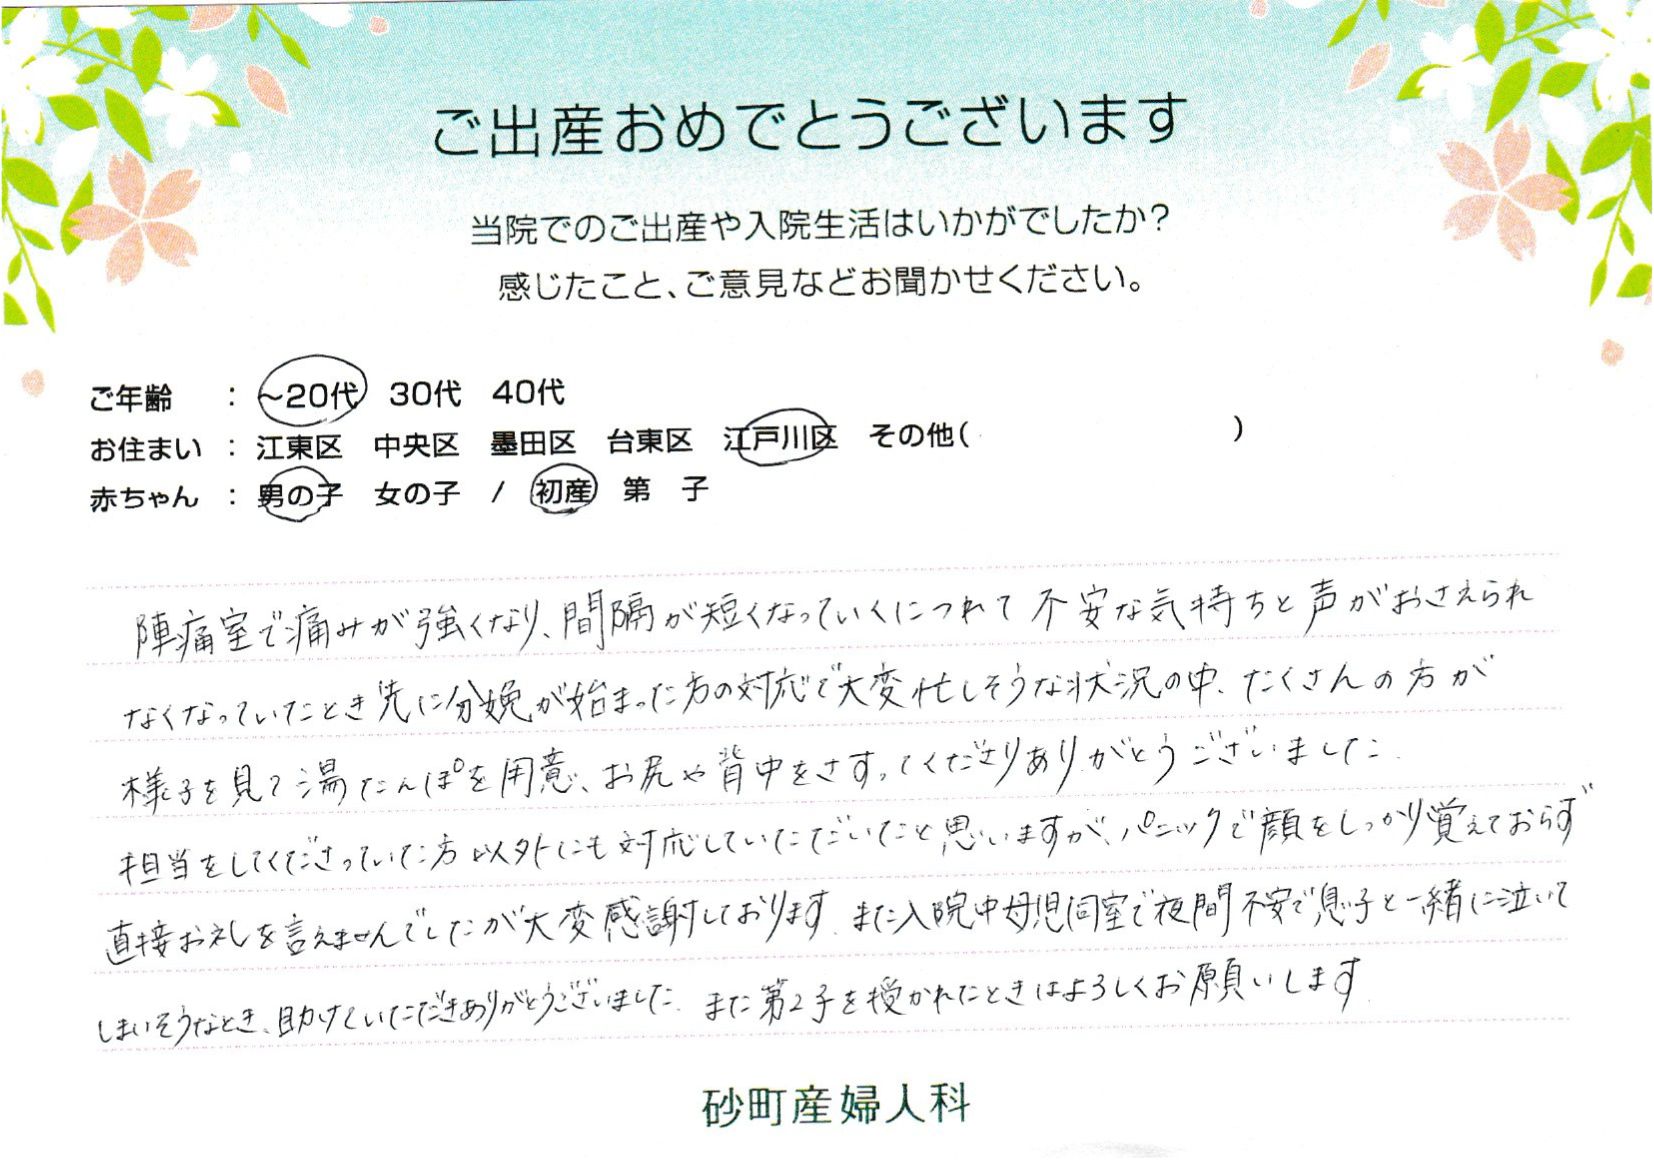 ご出産おめでとうございます
当院でのご出産や入院生活はいかがでしたか？
感じたこと、ご意見などお聞かせください。
ご年齢 ： ～20代 30代 40代
お住まい ： 江東区 中央区 墨田区 台東区 江戸川区 その他( )
赤ちゃん ： 男の子 女の子 / 初産 第 子
陣痛室で痛みが強くなり、間隔が短くなっていくにつれて不安な気持ちと声がおさえられ
なくなっていたとき先に分娩が始まった方の対応で大変忙しそうな状況の中、たくさんの方が
様子を見て湯たんぽを用意、お尻や背中をさすってくださりありがとうございました.
担当をしてくださっていた方以外にも対応していただいたと思いますが、パニックで顔をしっかり覚えておらず
直接お礼を言えませんでしたが大変感謝しております. また入院中母児同室で夜間不安で息子と一緒に泣いて
しまいそうなとき、助けていただきありがとうございました. また第2子を授かれたときはよろしくお願いします.
砂町産婦人科